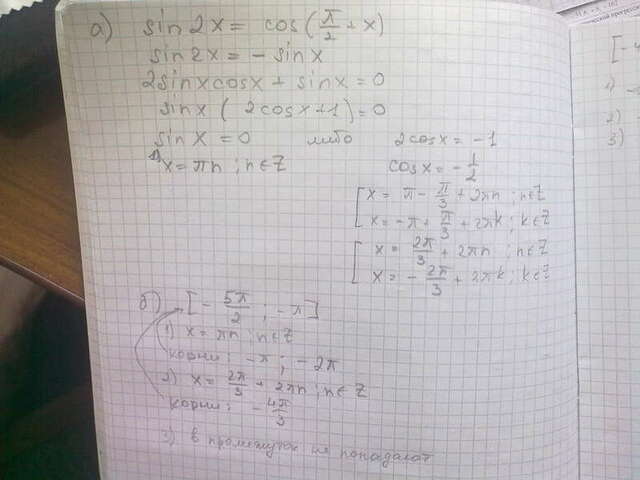 а) sin 2x = cos(π/2 + x)
sin 2x = - sin x
2 sin x cos x + sin x = 0
sin x ( 2 cos x + 1 ) = 0
sin x = 0 либо 2 cos x = -1
1) x = πn ; n ∈ Z cos x = - 1/2
[ x = π - π/3 + 2πn ; n ∈ Z
x = -π + π/3 + 2πk ; k ∈ Z
[ x = 2π/3 + 2πn ; n ∈ Z
x = - 2π/3 + 2πk ; k ∈ Z
б) [ - 5π/2 ; - π ]
1) x = πn ; n ∈ Z
корни : -π ; - 2π
2) x = 2π/3 + 2πn ; n ∈ Z
корни : - 4π/3
3) в промежуток не попадают
[-
1)
2)
3)